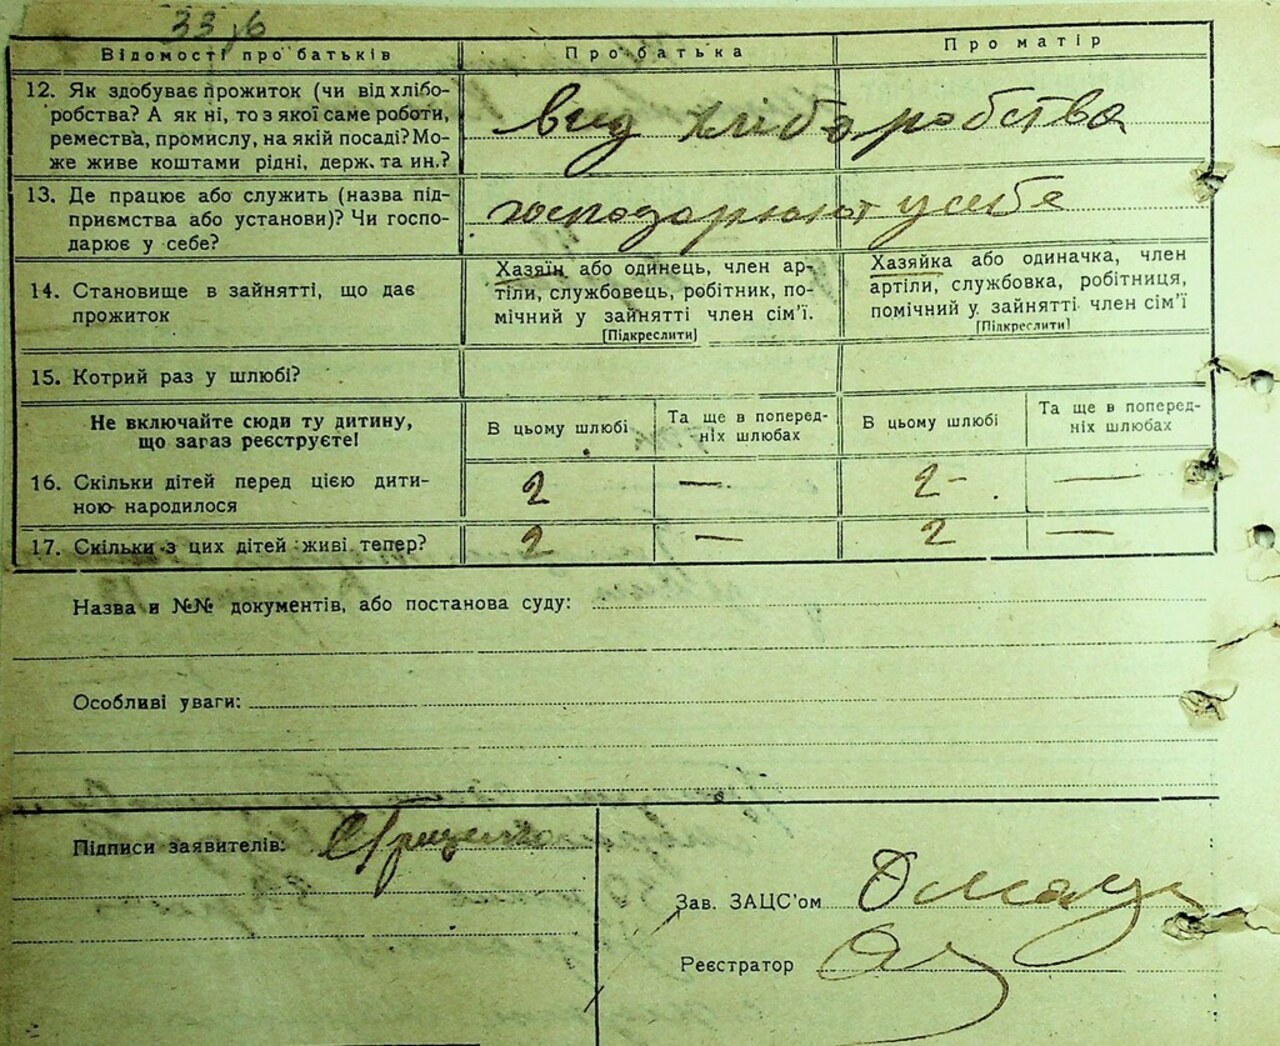 33
Відомості про батьків Про батька Про матір
12. Як здобуває прожиток (чи від хлібо-
робства? А як ні, то з якої саме роботи,
ремества, промислу, на якій посаді? Мо-
же живе коштами рідні, держ. та ин.?
вид хліборобства
13. Де працює або служить (назва під-
приємства або установи)? Чи госпо-
дарює у себе?
господарюют у себе
14. Становище в зайнятті, що дає
прожиток
Хазяїн або одинець, член ар-
тіли, службовець, робітник, по-
мічний у зайнятті член сім’ї.
[Підкреслити]
Хазяйка або одиначка, член
артіли, службовка, робітниця,
помічний у зайнятті член сім’ї
[Підкреслити]
15. Котрий раз у шлюбі?
Не включайте сюди ту дитину,
що загаз реєструєте!
В цьому шлюбі
Та ще в поперед-
ніх шлюбах
В цьому шлюбі
Та ще в поперед-
ніх шлюбах
16. Скільки дітей перед цією дити-
ною народилося
2 — 2 - —
17. Скільки з цих дітей живі тепер?
2 — 2 —
Назва и №№ документів, або постанова суду:
Особливі уваги:
Підписи заявителів: Гриценко
Зав. ЗАЦС’ом
Реєстратор